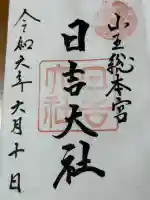 山王総本宮
日吉大社
令和六年六月十日